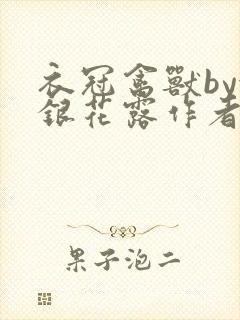 衣冠禽獸by
銀花露作者
果子泡二